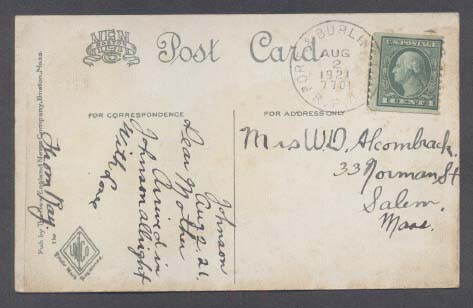 Post Card
NEW
BOSTON
AUG
2
1921
FOR CORRESPONDENCE
FOR ADDRESS ONLY
U.S. POSTAGE
1 CENT 1
Mrs W.D. Alcombrack.
33 Norman St
Salem.
Mass.
Johnson
Aug 2. 21.
Dear Mother
Arrived in
Johnson allright
With Love
from Ray.
Pub. by The New England News Company, Boston, Mass.